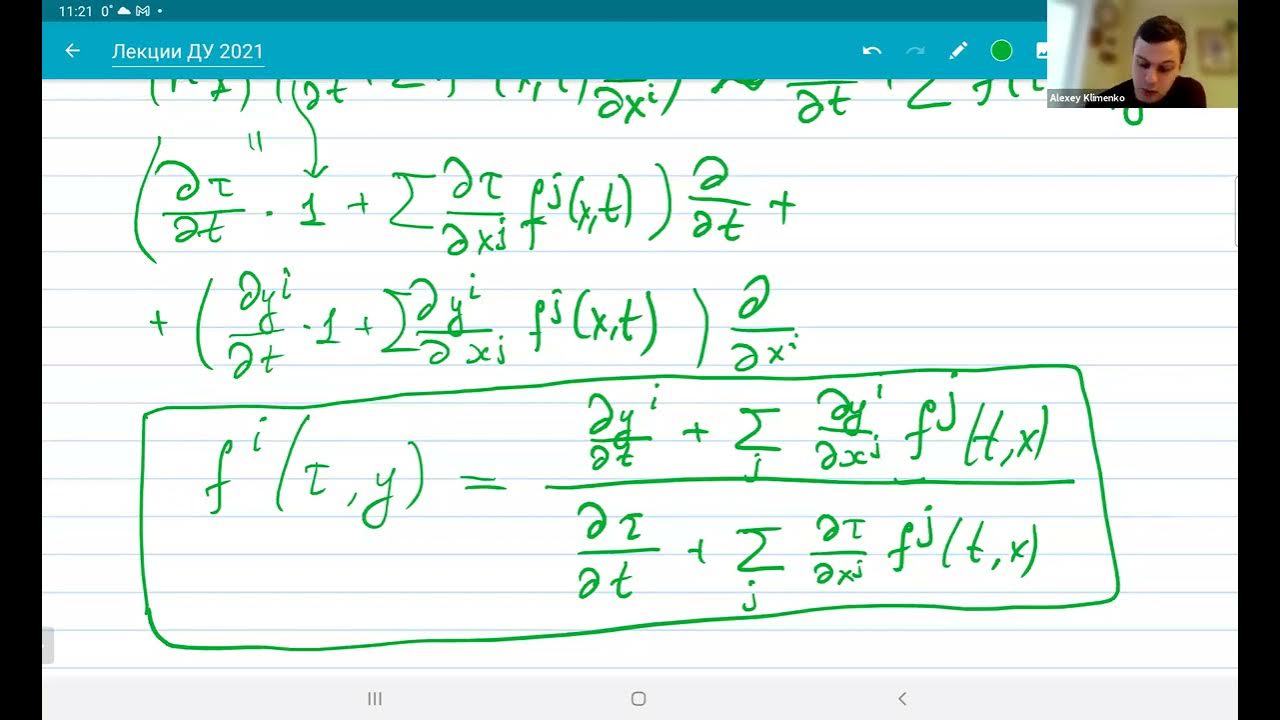 11:21 0°
Лекции ДУ 2021
Alexey Klimenko
(∂τ/∂t · 1 + ∑ ∂τ/∂xʲ fʲ(x,t)) ∂/∂t +
+ (∂yⁱ/∂t · 1 + ∑ ∂yⁱ/∂xⱼ fʲ(x,t)) ∂/∂xⁱ
fⁱ(τ, y) = (∂yⁱ/∂t + ∑ⱼ ∂yⁱ/∂xʲ fʲ(t,x)) / (∂τ/∂t + ∑ⱼ ∂τ/∂xʲ fʲ(t,x))